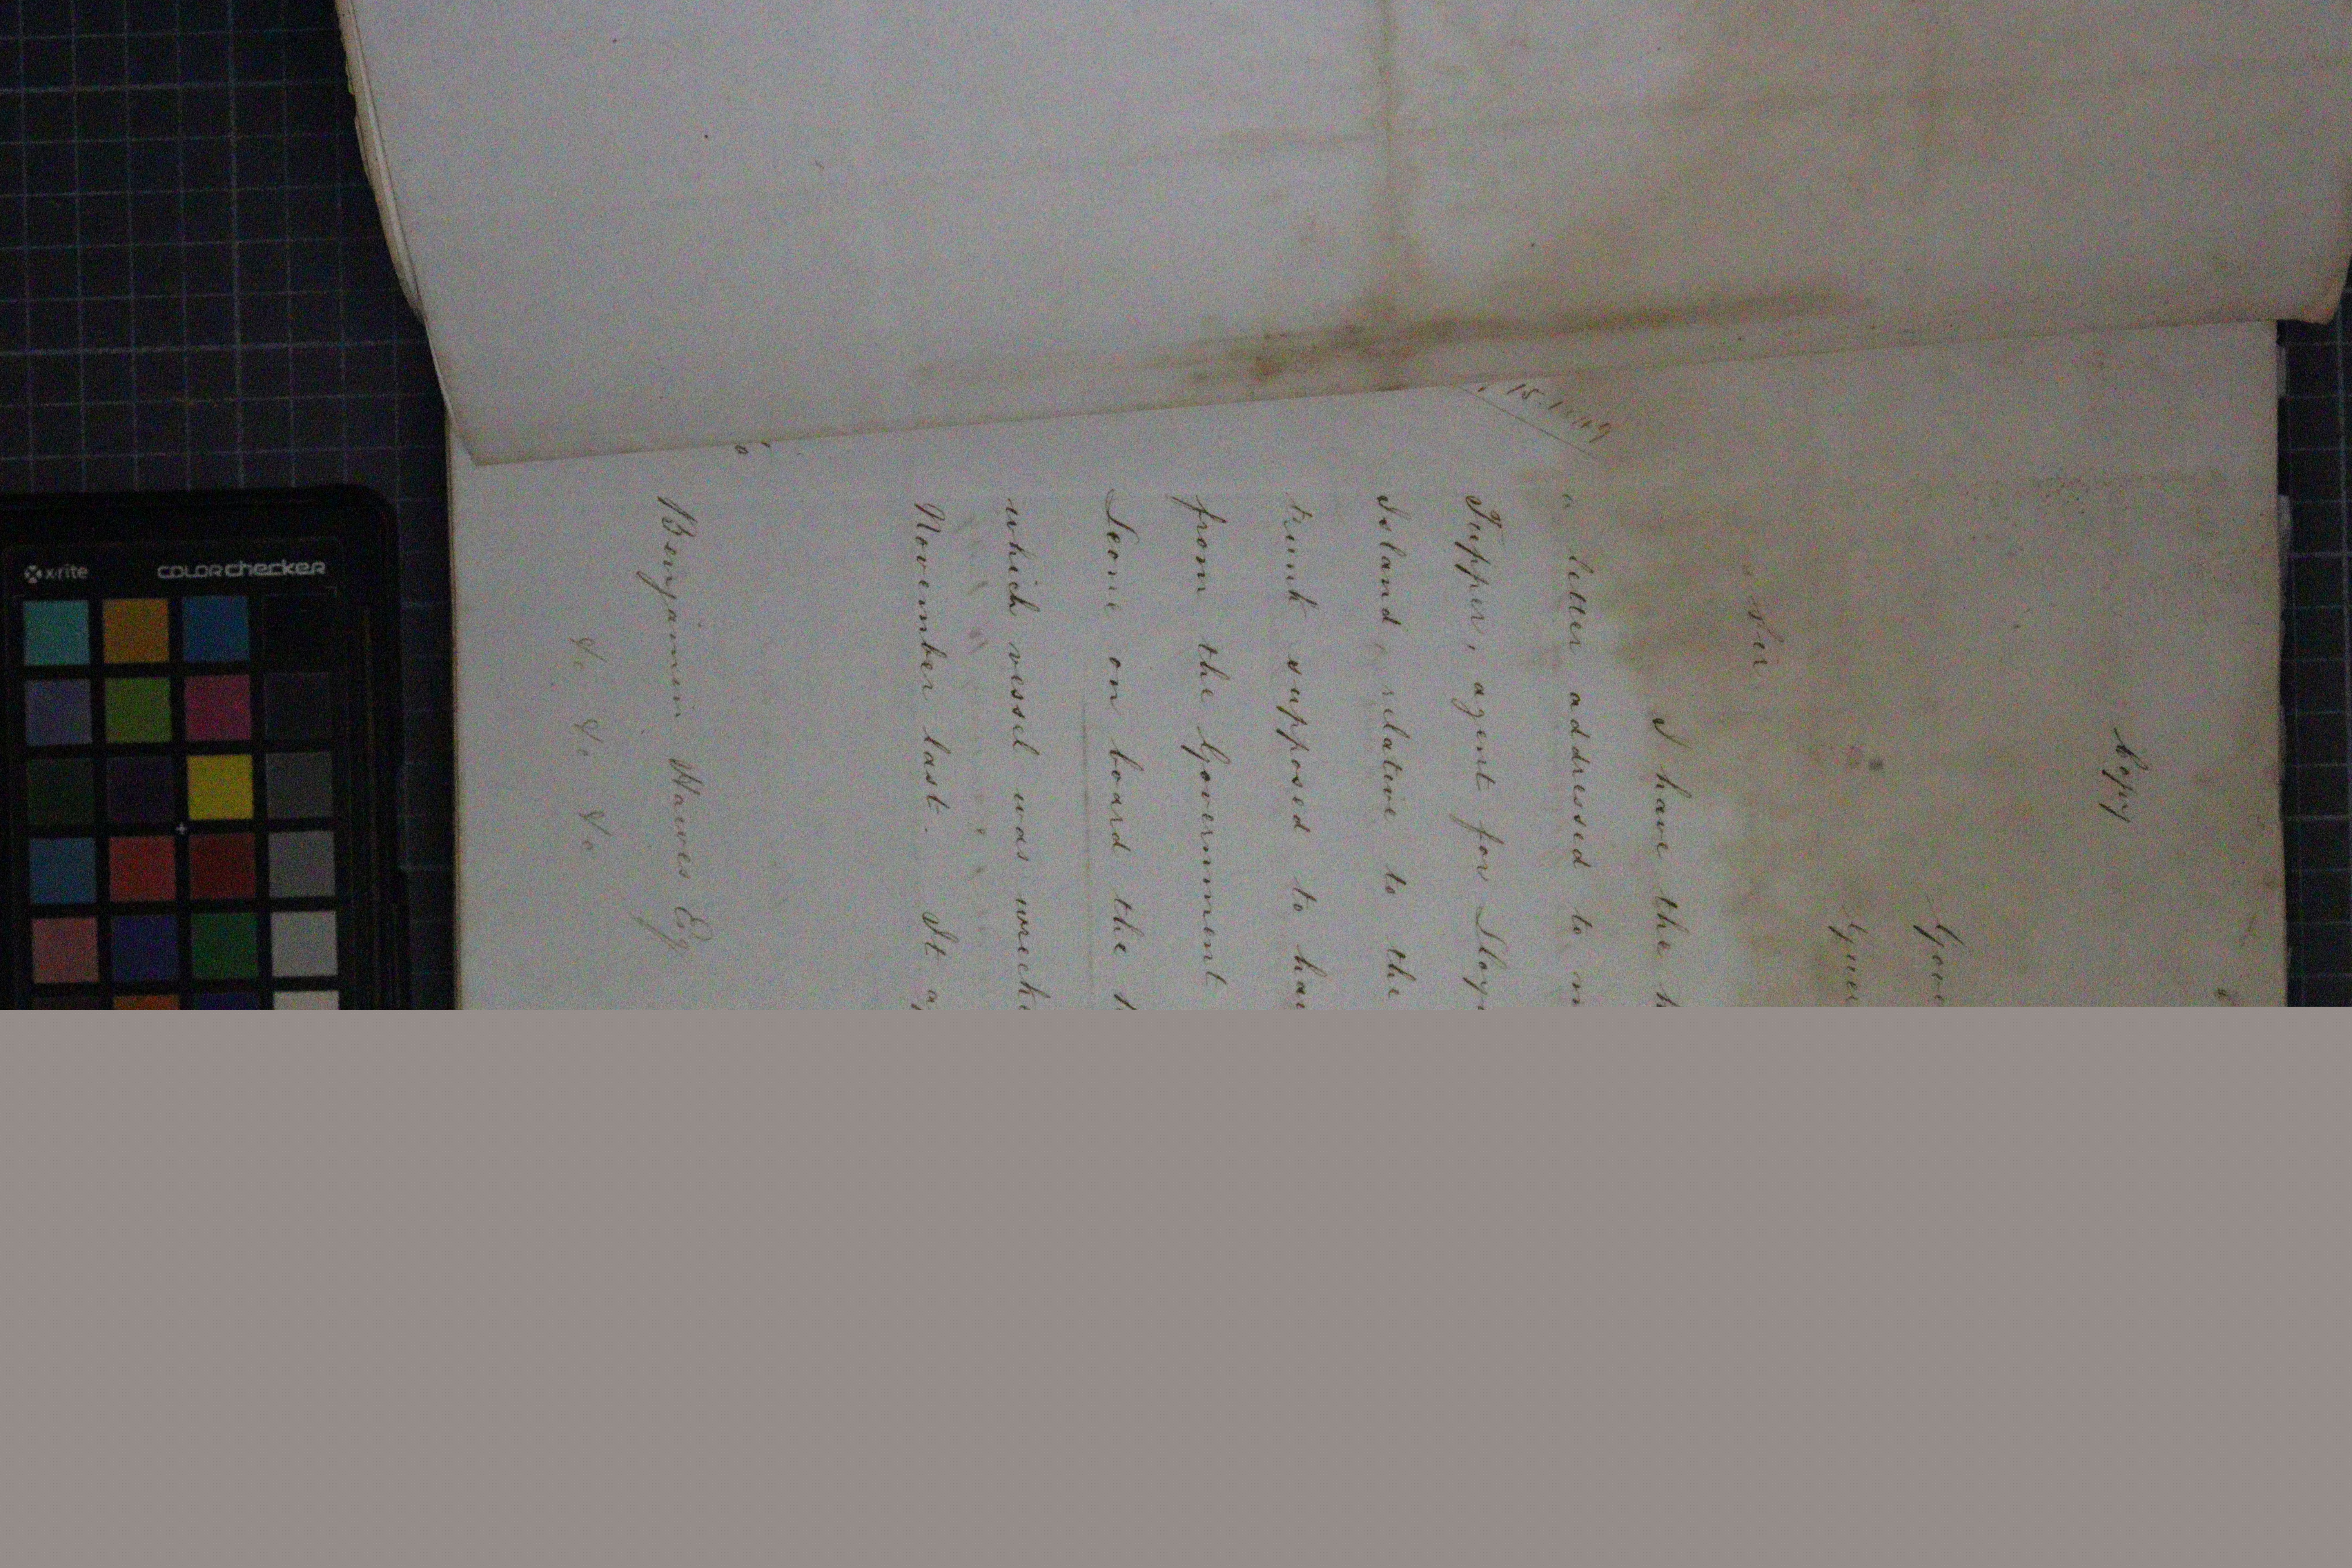 Copy
Gove
Guer
Sir
I have the h
a letter addressed to m
Tupper, agent for Lloy
Island relative to the
trunk supposed to hav
from the Government
Leone on board the
which vessel was wreck
November last. It a
Benjamin Hawes Esq
&c &c &c
x-rite
colorchecker